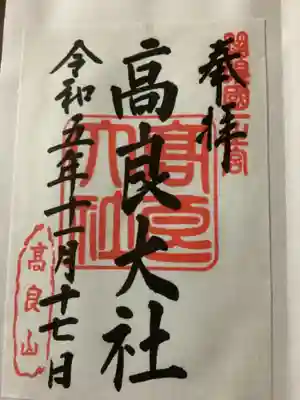 筑後國一之宮
奉拝
高良大社
髙良大社
令和五年十二月十七日
高良山